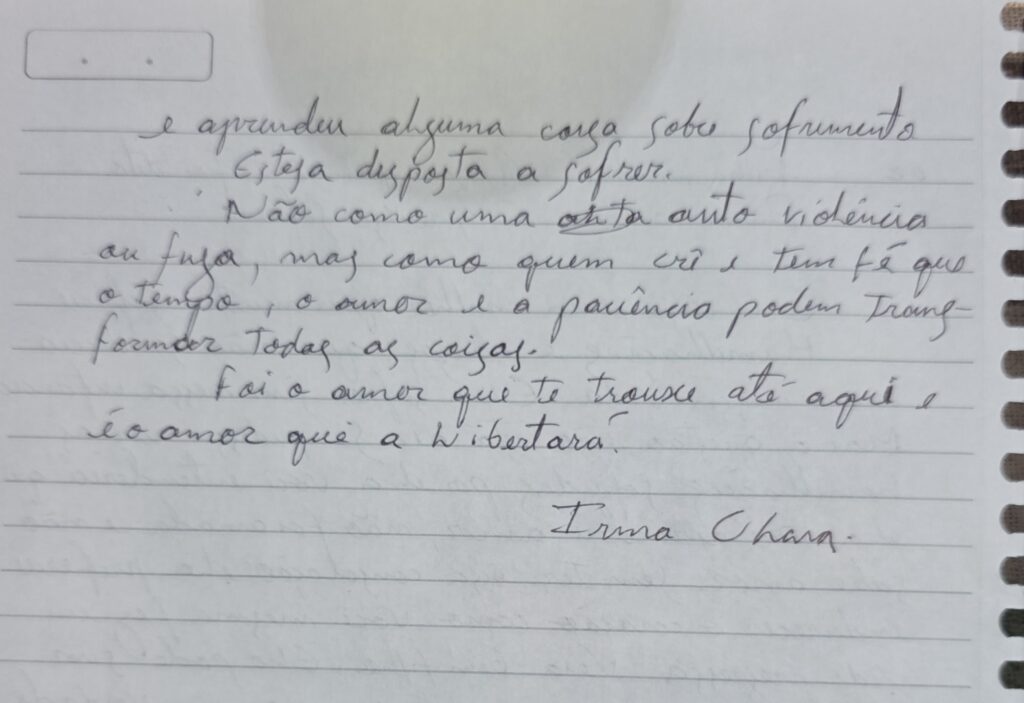 e aprendeu alguma coisa sobre sofrimento
Esteja disposta a sofrer.
Não como uma auto violência
ou fuga, mas como quem crê e tem fé que
o tempo, o amor e a paciência podem trans-
formar todas as coisas.
Foi o amor que te trouxe até aqui e
é o amor que a libertará.
Irma Chara.